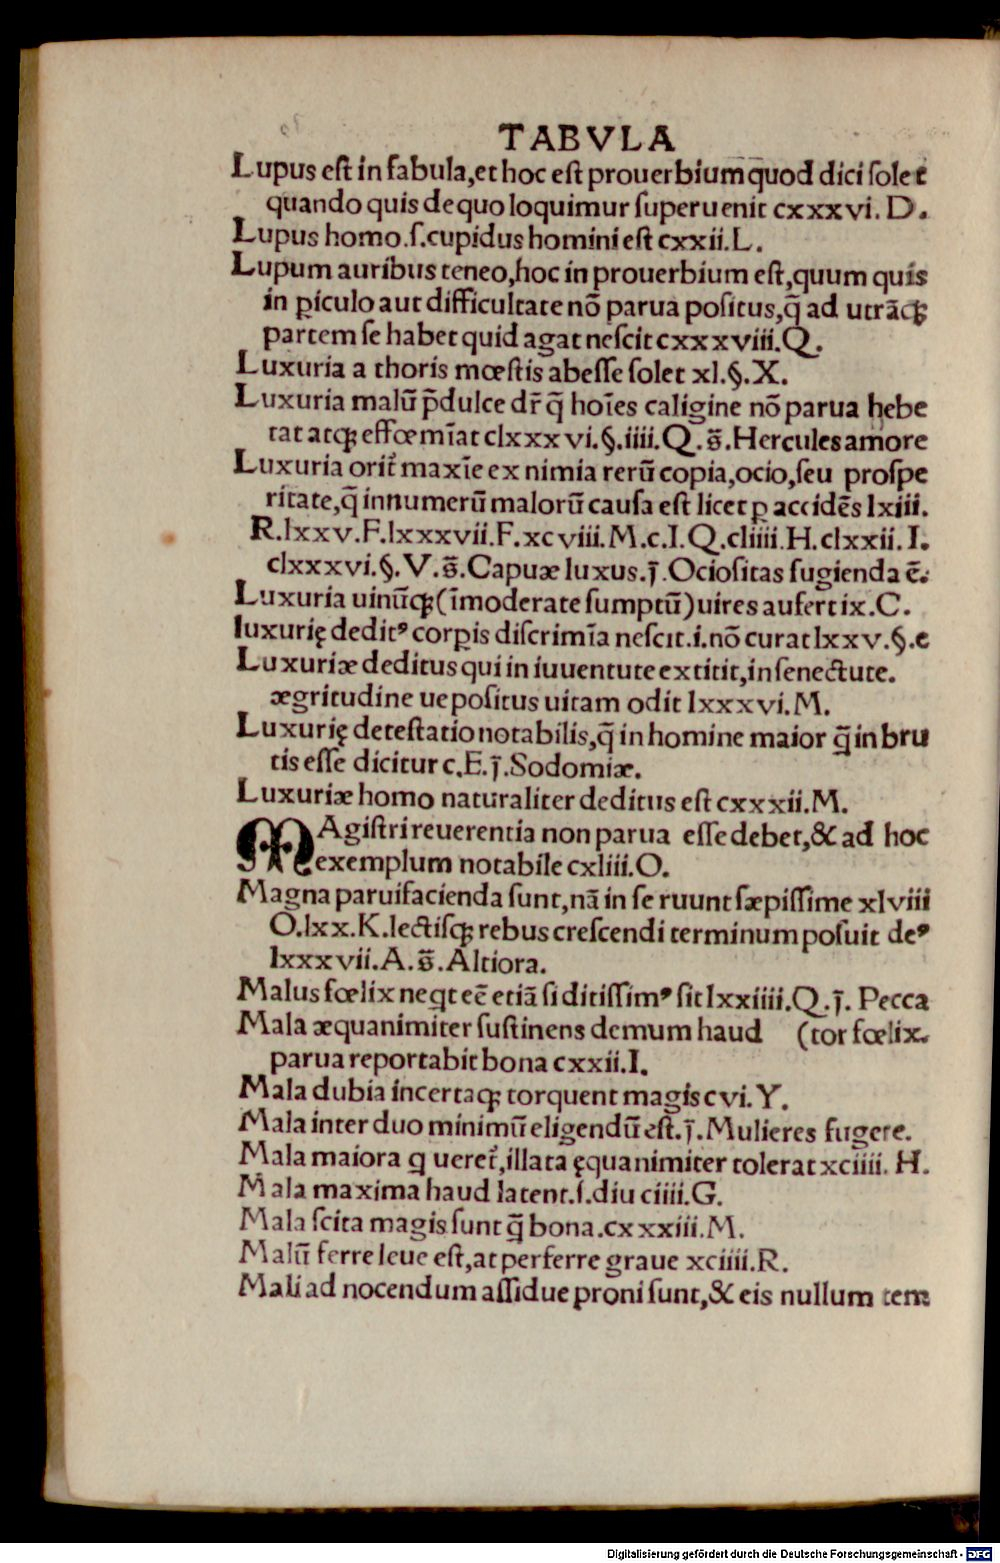 TABVLA
Lupus eſt in fabula,et hoc eſt prouerbium quod dici ſolet
quando quis de quo loquimur ſuperuenit cxxxvi. D.
Lupus homo.ſ.cupidus homini eſt cxxii.L.
Lupum auribus teneo,hoc in prouerbium eſt,quum quis
in ꝑiculo aut difficultate nō parua poſitus,q̄ ad utrāqꝫ
partem ſe habet quid agat neſcit cxxxviii.Q.
Luxuria a thoris mœſtis abeſſe ſolet xl.§.X.
Luxuria malū p̄dulce dr̄ q̄ hoīes caligine nō parua hebe
tat atqꝫ effœmīat clxxxvi.§.iiii.Q.s̄.Hercules amore
Luxuria orit᷑ maxīe ex nimia rerū copia,ocio,ſeu proſpe
ritate,q̄ innumerū malorū cauſa eſt licet ꝑ accidēs lxiii.
R.lxxv.F.lxxxvii.F.xcviii.M.c.I.Q.cliiii.H.clxxii.I.
clxxxvi.§.V.s̄.Capuæ luxus.j̄.Ocioſitas fugienda ē.
Luxuria uinūqꝫ(īmoderate ſumptū)uires aufert ix.C.
luxurię dedit⁹ corꝑis diſcrimīa neſcit.i.nō curat lxxv.§.e
Luxuriæ deditus qui in iuuentute extitit,in ſenectute.
ægritudine ue poſitus uitam odit lxxxvi.M.
Luxurię deteſtatio notabilis,q̄ in homine maior q̄ in bru
tis eſſe dicitur c.E.j̄.Sodomiæ.
Luxuriæ homo naturaliter deditus eſt cxxxii.M.
MAgiſtri reuerentia non parua eſſe debet,& ad hoc
exemplum notabile cxliii.O.
Magna paruifacienda ſunt,nā in ſe ruunt ſæpiſſime xlviii
O.lxx.K.lectiſqꝫ rebus creſcendi terminum poſuit de⁹
lxxxvii.A.s̄.Altiora.
Malus fœlix neqt eē etiā ſi ditiſſim⁹ ſit lxxiiii.Q.j̄. Pecca
Mala æquanimiter ſuſtinens demum haud (tor fœlix.
parua reportabit bona cxxii.I.
Mala dubia incertaqꝫ torquent magis cvi.Y.
Mala inter duo minimū eligendū eſt.j̄.Mulieres fugere.
Mala maiora q ueret᷑,illata ęquanimiter tolerat xciiii. H.
Mala maxima haud latent.ſ.diu ciiii.G.
Mala ſcita magis ſunt q̄ bona.cxxxiii.M.
Malū ferre leue eſt,at perferre graue xciiii.R.
Mali ad nocendum aſſidue proni ſunt,& eis nullum tem
Digitalisierung gefördert durch die Deutsche Forschungsgemeinschaft - DFG